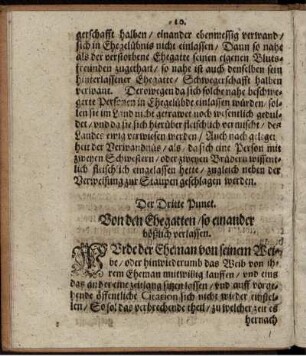 10.
gerschafft halben / einander ebenmessig verwand /
sich in Ehegelübnis nicht einlassen / Dann so nahe
als der verstorbene Ehegatte seinen eigenen Bluts-
freunden zugethan / so nahe ist auch denselben sein
hinterlassener Ehegatte / Schwegerschafft halben
verwant. Derowegen da sich solche nahe beschwe-
gerte Personen in Ehegelübde einlassen würden / sol-
len sie im Land nicht getrawet noch wesentlich gedul-
det / und da sie sich hierüber fleischlich vermischt / des
Landes ewig verwiesen werden / Auch nach gelegen-
heit der Verwandnüs / als / da sich eine Person mit
zweyen Schwestern / oder zweyen Brüdern wissent-
lich fleischlich eingelassen hette / zugleich neben der
Verweisung zur Staupen geschlagen werden.
Der Dritte Punct.
Von den Ehegatten / so einander
bößlich verlassen.
WUrde der Eheman von seinem Wei-
be / oder hinwiederumb das Weib von ih-
rem Eheman mutwillig lauffen / und eins
das ander eine zeitlang sitzen lassen / und auff vorge-
hende öffentliche Citation sich nicht wieder einstel-
len / So sol das verbrechende theil / zu welcher zeit es
hernach